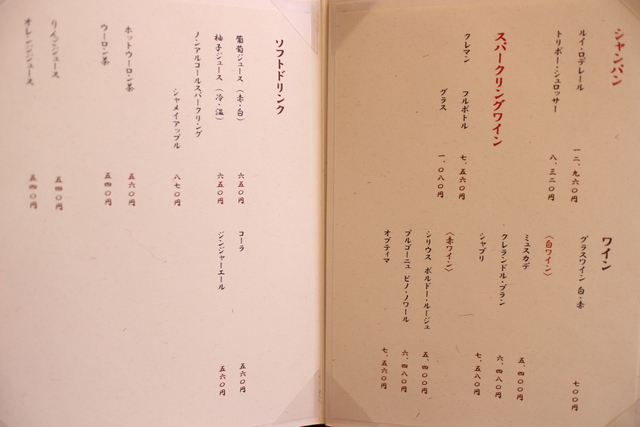 シャンパン
ルイ・ロデレール 一二、九六〇円
トリボー・シュロッサー 八、三二〇円
スパークリングワイン
クレマン フルボトル 七、五六〇円
グラス 一、〇八〇円
ワイン
グラスワイン 白・赤 七〇〇円
〈白ワイン〉
ミュスカデ 五、四〇〇円
クレランドル・ブラン 六、四八〇円
シャブリ 七、五六〇円
〈赤ワイン〉
シリウス ボルドー・ルージュ 五、四〇〇円
ブルゴーニュ ピノ・ノワール 六、四八〇円
オプティマ 七、五六〇円
ソフトドリンク
葡萄ジュース(赤・白) 六五〇円
柚子ジュース(冷・温) 六五〇円
ノンアルコールスパークリング
シャメイアップル 八七〇円
ホットウーロン茶 五六〇円
ウーロン茶 五四〇円
りんごジュース 五四〇円
オレンジジュース 五四〇円
コーラ 五六〇円
ジンジャーエール 五六〇円